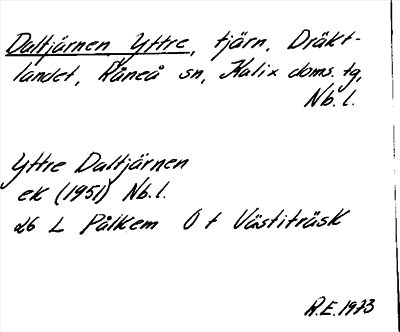 Daltjärnen Yttre, tjärn, Dräkt-
landet, Råneå sn, Kalix doms. tg,
Nb. l.
Yttre Daltjärnen
ek (1951) Nb. l.
26 L Pålkem O t Västiträsk
R.E. 1973